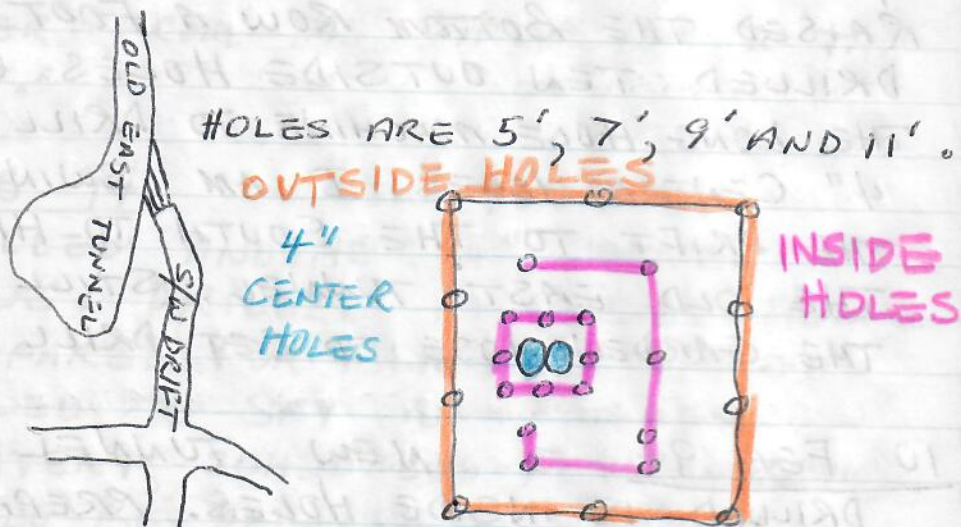 OLD EAST TUNNEL
S/W DRIFT
HOLES ARE 5', 7', 9' AND 11'.
OUTSIDE HOLES
4"
CENTER
HOLES
INSIDE
HOLES